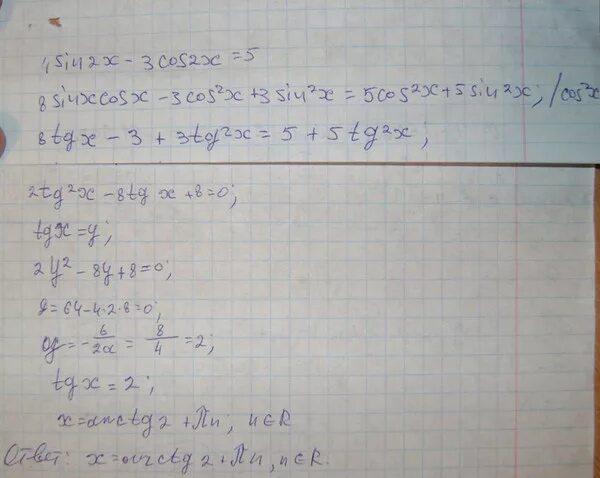 4sin2x - 3cos2x = 5
8sinxcosx - 3cos²x + 3sin²x = 5cos²x + 5sin²x; /cos²x
8tgx - 3 + 3tg²x = 5 + 5tg²x;
2tg²x - 8tgx + 8 = 0;
tgx = y;
2y² - 8y + 8 = 0;
D = 64 - 4·2·8 = 0;
y = -b/2a = 8/4 = 2;
tgx = 2;
x = arctg2 + Пn; n∈R
Ответ: x = arctg2 + Пn, n∈R.